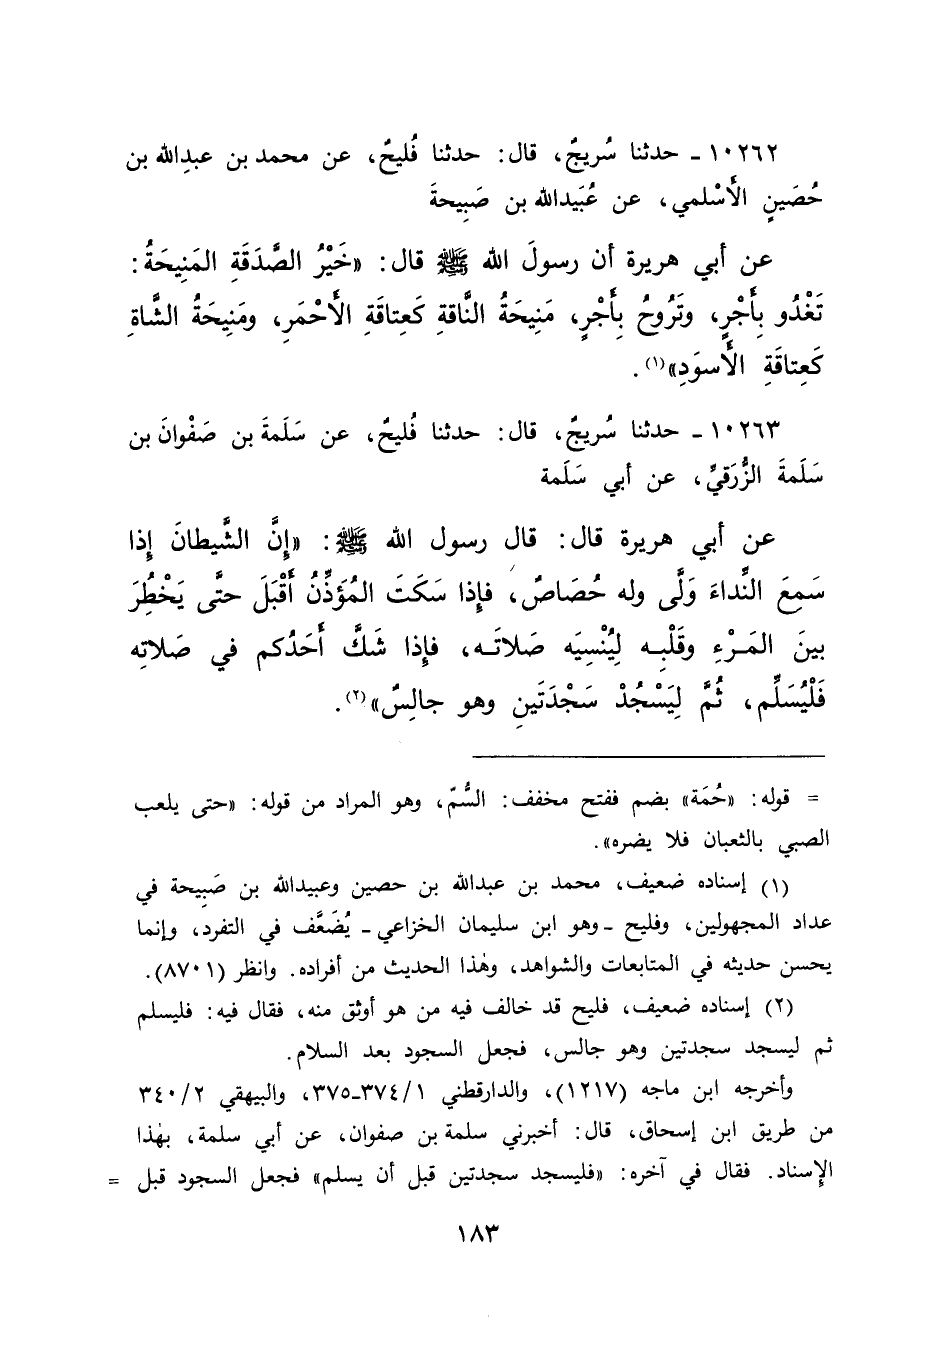 ١٠٢٦٢ ـ حدثنا سُريجٌ، قال: حدثنا فُليحٌ، عن محمد بن عبدِالله بن
حُصَينٍ الأَسْلمي، عن عُبَيدالله بن صَبِيحةَ
عن أبي هريرة أن رسولَ الله ﷺ قال: «خَيْرُ الصَّدَقَةِ المَنِيحَةُ:
تَغْدُو بِأَجْرٍ، وتَرُوحُ بِأَجْرٍ، مَنِيحَةُ النَّاقةِ كَعِتاقَةِ الأَحْمَرِ، ومَنِيحَةُ الشَّاةِ
كَعِتاقَةِ الأَسوَدِ»(١).
١٠٢٦٣ ـ حدثنا سُريجٌ، قال: حدثنا فُليحٌ، عن سَلَمةَ بن صَفْوانَ بن
سَلَمةَ الزُّرَقيِّ، عن أبي سَلَمة
عن أبي هريرة قال: قال رسول الله ﷺ: «إِنَّ الشَّيطانَ إِذا
سَمِعَ النِّداءَ وَلَّى وله حُصَاصٌ، فإِذا سَكَتَ المُؤَذِّنُ أَقْبَلَ حتَّى يَخْطُِرَ
بينَ المَرْءِ وقَلْبِه لِيُنْسِيَه صَلاتَه، فإِذا شَكَّ أَحَدُكم في صَلاتِه
فَلْيُسَلِّم، ثُمَّ لِيَسْجُدْ سَجْدَتَينِ وهو جالِسٌ»(٢).
= قوله: «حُمَة» بضم ففتح مخفف: السُّمّ، وهو المراد من قوله: «حتى يلعب
الصبي بالثعبان فلا يضره».
(١) إسناده ضعيف، محمد بن عبدالله بن حصين وعبيدالله بن صَبِيحة في
عداد المجهولين، وفليح ـ وهو ابن سليمان الخزاعي ـ يُضَعَّف في التفرد، وإنما
يحسن حديثه في المتابعات والشواهد، وهٰذا الحديث من أفراده. وانظر (٨٧٠١).
(٢) إسناده ضعيف، فليح قد خالف فيه من هو أوثق منه، فقال فيه: فليسلم
ثم ليسجد سجدتين وهو جالس، فجعل السجود بعد السلام.
وأخرجه ابن ماجه (١٢١٧)، والدارقطني ٣٧٤/١ـ٣٧٥، والبيهقي ٣٤٠/٢
من طريق ابن إسحاق، قال: أخبرني سلمة بن صفوان، عن أبي سلمة، بهٰذا
الإِسناد. فقال في آخره: «فليسجد سجدتين قبل أن يسلم» فجعل السجود قبل =
١٨٣